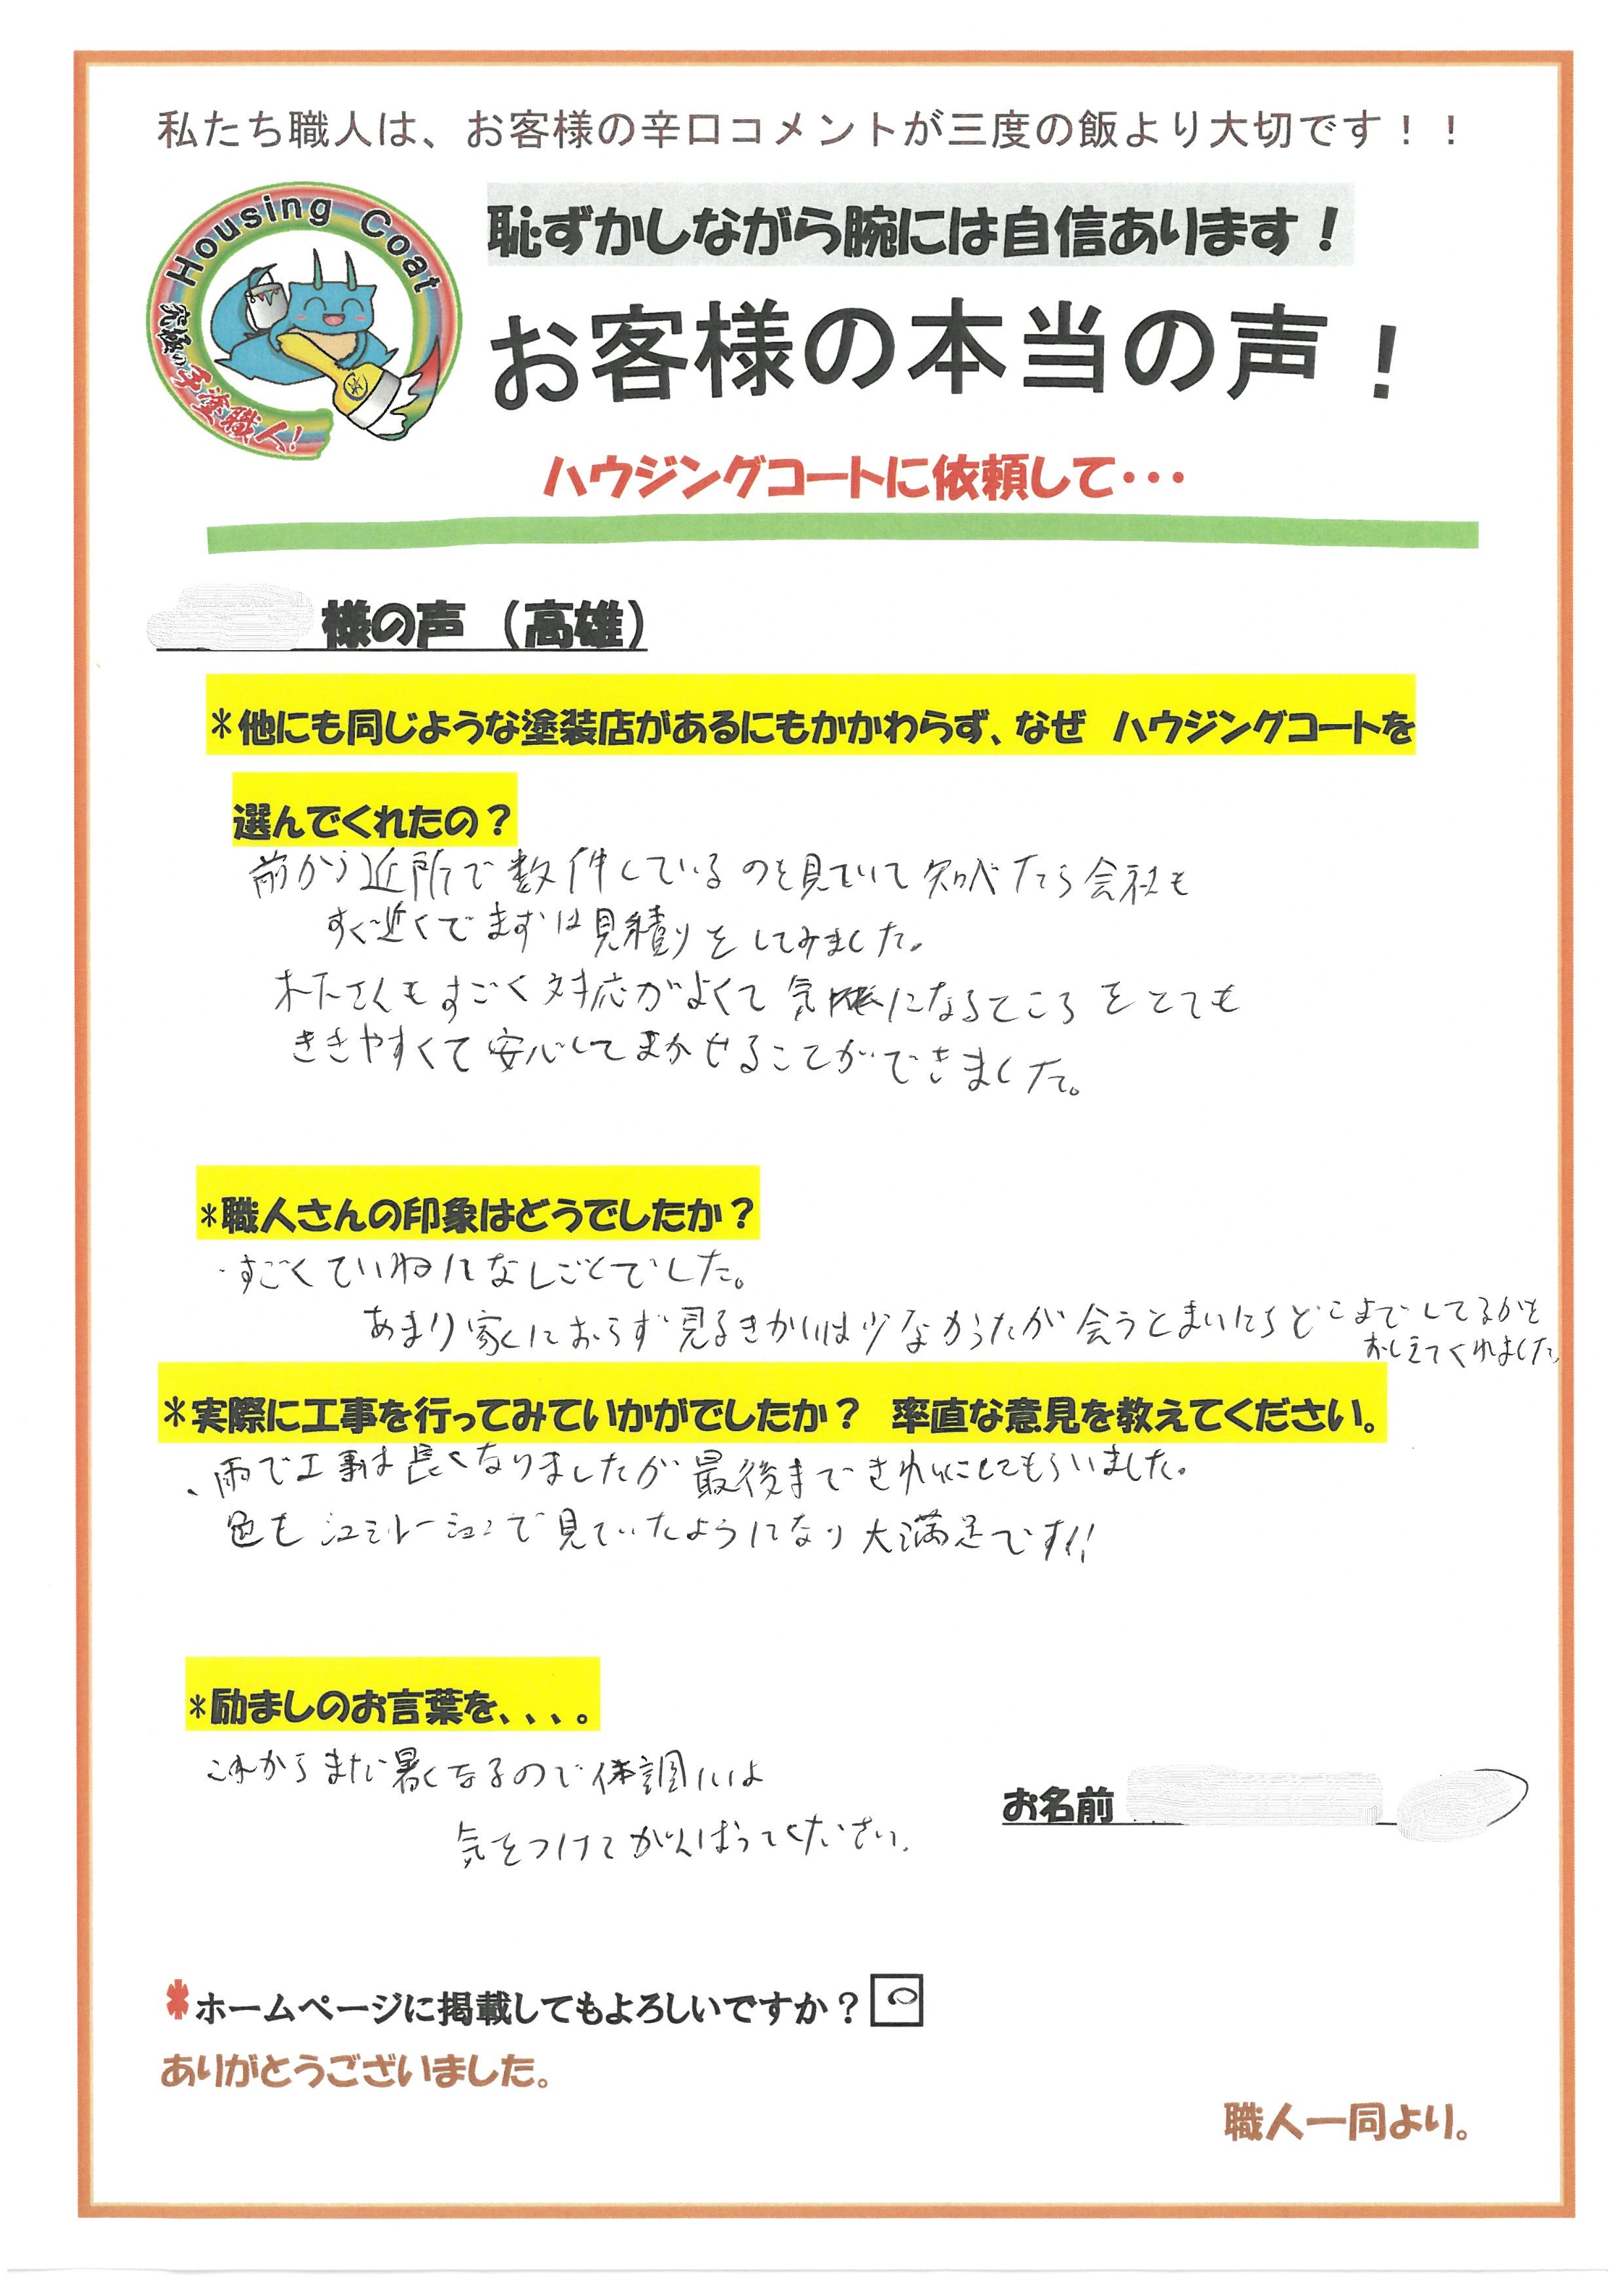 私たち職人は、お客様の辛口コメントが三度の飯より大切です！！
Housing Coat
究極の手塗職人！
恥ずかしながら腕には自信あります！
お客様の本当の声！
ハウジングコートに依頼して・・・
様の声（高雄）
＊他にも同じような塗装店があるにもかかわらず、なぜ ハウジングコートを
選んでくれたの？
前から近所で数件しているのを見ていて 知べたら会社も
すぐ近くでまずは見積りをしてみました。
木下さんもすごく対応がよくて 気になるところをとても
ききやすくて安心してまかせることができました。
＊職人さんの印象はどうでしたか？
・すごくていねいなしごとでした。
あまり家におらず見るきかいは少なかったが 会うとまいにちどこまでしてるかを
おしえてくれました。
＊実際に工事を行ってみていかがでしたか？ 率直な意見を教えてください。
、雨で工事は長くなりましたが 最後まできれいにしてもらいました。
色もシュミレーションで見ていたようになり大満足です!!
＊励ましのお言葉を、、、。
これからまだ暑くなるので体調には
気をつけてがんばってください。
お名前
＊ホームページに掲載してもよろしいですか？ ○
ありがとうございました。
職人一同より。